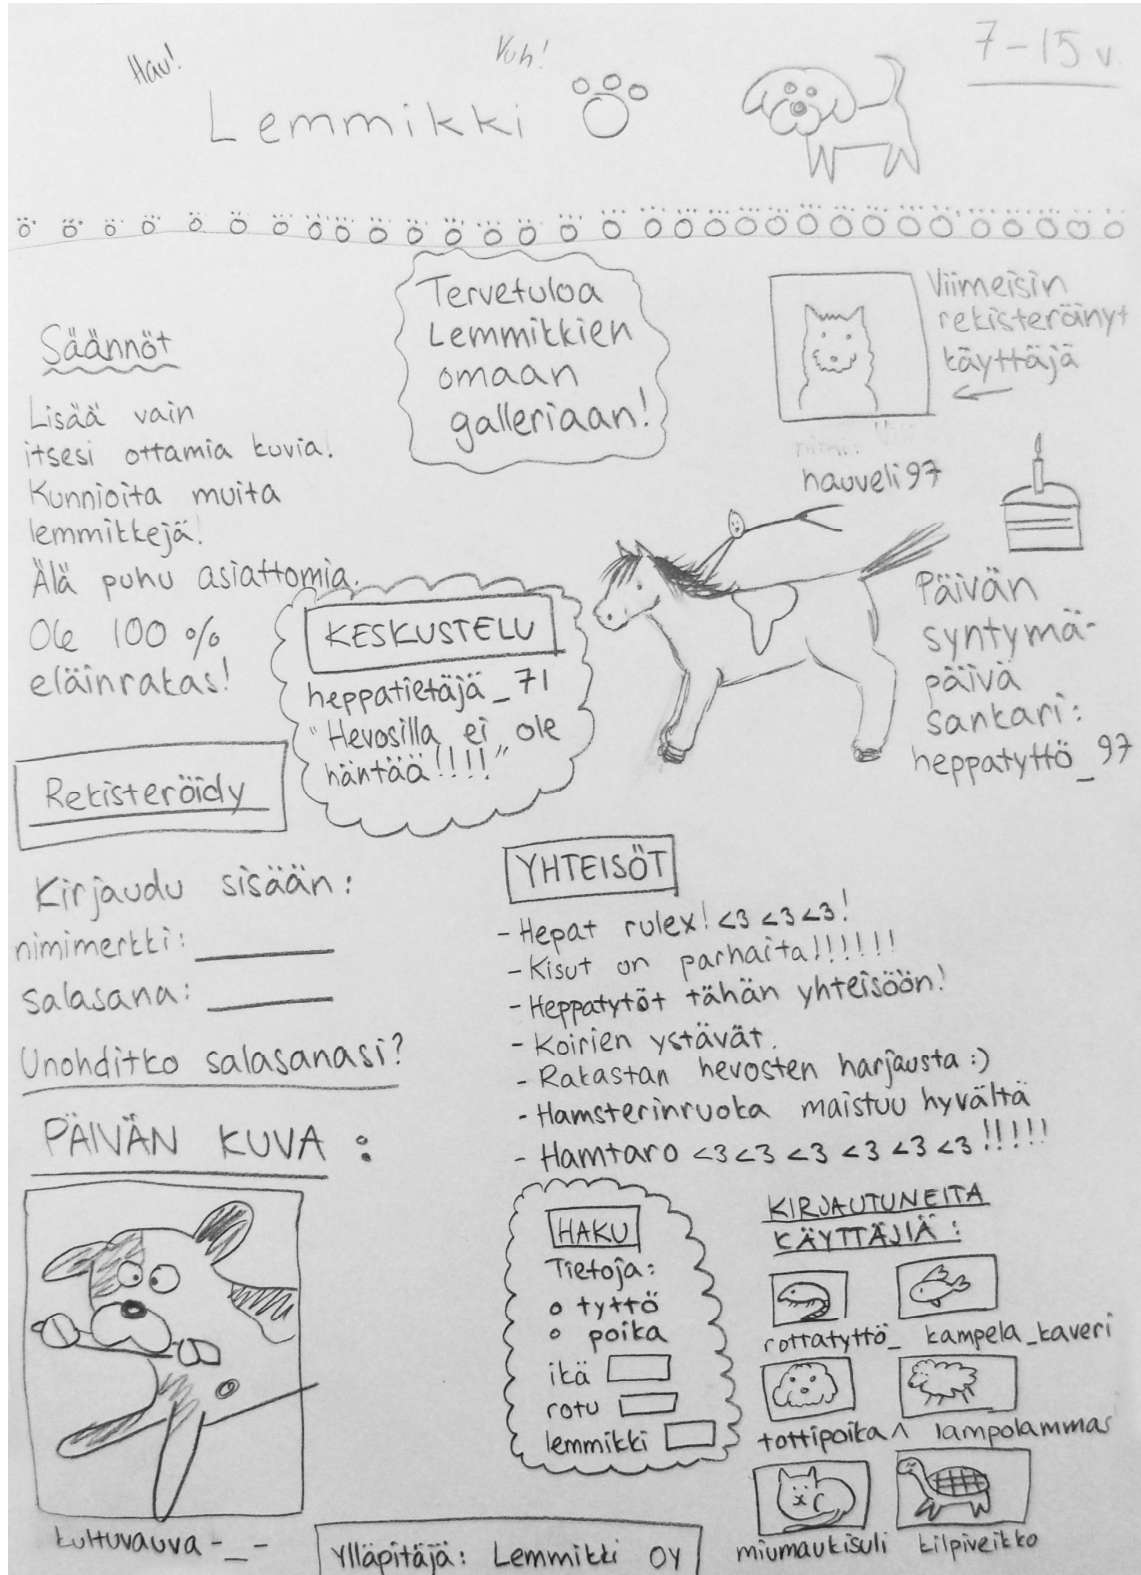 Hau!
Vuh!
7-15 v.
Lemmikki
Säännöt
Lisää vain
itsesi ottamia kuvia!
Kunnioita muita
lemmikkejä!
Älä puhu asiattomia.
Ole 100 %
eläinrakas!
Tervetuloa
Lemmikkien
omaan
galleriaan!
Viimeisin
rekisteröinyt
käyttäjä
nimi:
hauveli97
Päivän
syntymä-
päivä
sankari:
heppatyttö_97
KESKUSTELU
heppatietäjä_71
"Hevosilla ei ole
häntää!!!!"
Rekisteröidy
Kirjaudu sisään:
nimimerkki:
salasana:
Unohditko salasanasi?
PÄIVÄN KUVA:
kultuvauva-_-
YHTEISÖT
- Hepat rulex! <3 <3 <3!
- Kisut on parhaita!!!!!!
- Heppatytöt tähän yhteisöön!
- Koirien ystävät.
- Rakastan hevosten harjausta :)
- Hamsterinruoka maistuu hyvältä
- Hamtaro <3 <3 <3 <3 <3 <3 !!!!!
HAKU
Tietoja:
tyttö
poika
ikä
rotu
lemmikki
KIRJAUTUNEITA
KÄYTTÄJIÄ:
rottatyttö_ kampela_kaveri
tottipoika^ lampolammas
miumaukisuli kilpiveikko
Ylläpitäjä: Lemmikki OY